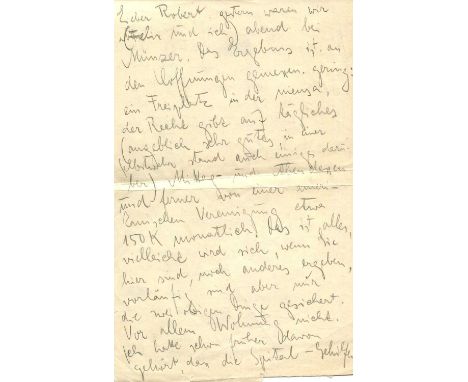 Lieber Robert gestern waren wir
und ich) abend bei
Münzer. Das Ergebnis ist an
den Hoffnungen gemessen gering:
ein Freiplatz in der mensa,
der Recht gibt auf tägliches
(angeblich sehr gutes, in einer
stand auch einiges darü-
ber) Mittag- und Abendessen
und ferner von einer ameri-
kanischen Vereinigung etwa
150 K monatlich. Das ist alles,
vielleicht wird sich, wenn Sie
hier sind, noch anderes ergeben,
vorläufig sind aber nur
die notwendigen Dinge gesichert.
Vor allem Wohnung nicht.
Ich hatte schon früher davon
gehört, dass die Spital-